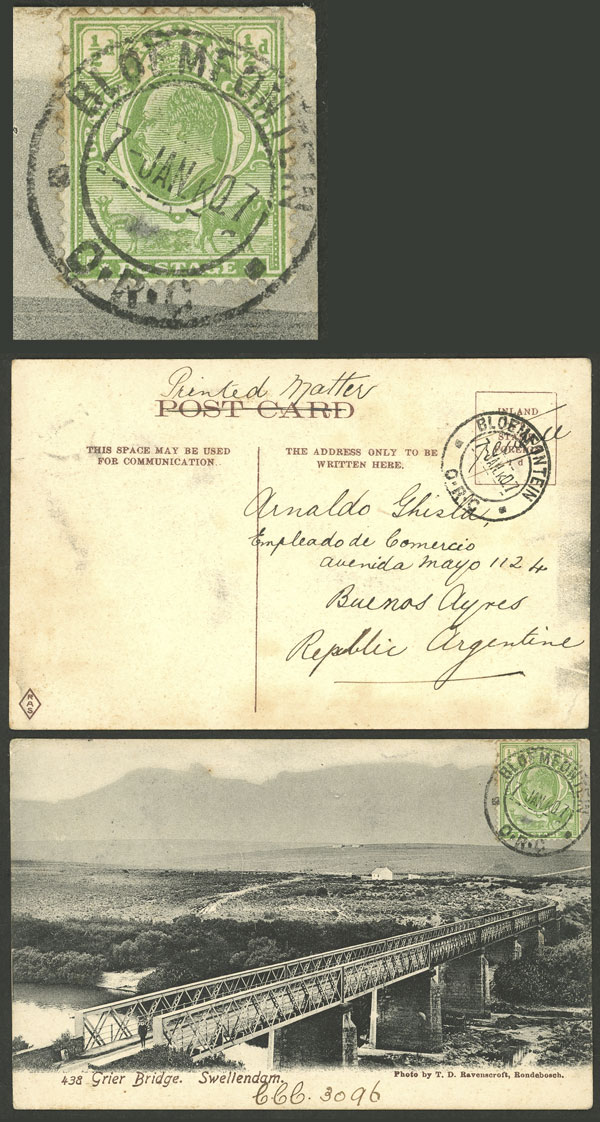 ½d ½d
BLOEMFONTEIN
7-JAN.07
POSTAGE
O.R.C
Printed Matter
POST CARD
INLAND
BLOEMFONTEIN
JAN 07
O.R.C
THIS SPACE MAY BE USED
FOR COMMUNICATION.
THE ADDRESS ONLY TO BE
WRITTEN HERE.
Arnaldo Ghisla,
Empleado de Comercio
avenida Mayo 1124
Buenos Ayres
Republic Argentine
RAS
BLOEMFONTEIN
7-JAN.07
O.R.C
438 Grier Bridge. Swellendam.
Photo by T. D. Ravenscroft, Rondebosch.
CCC. 3096